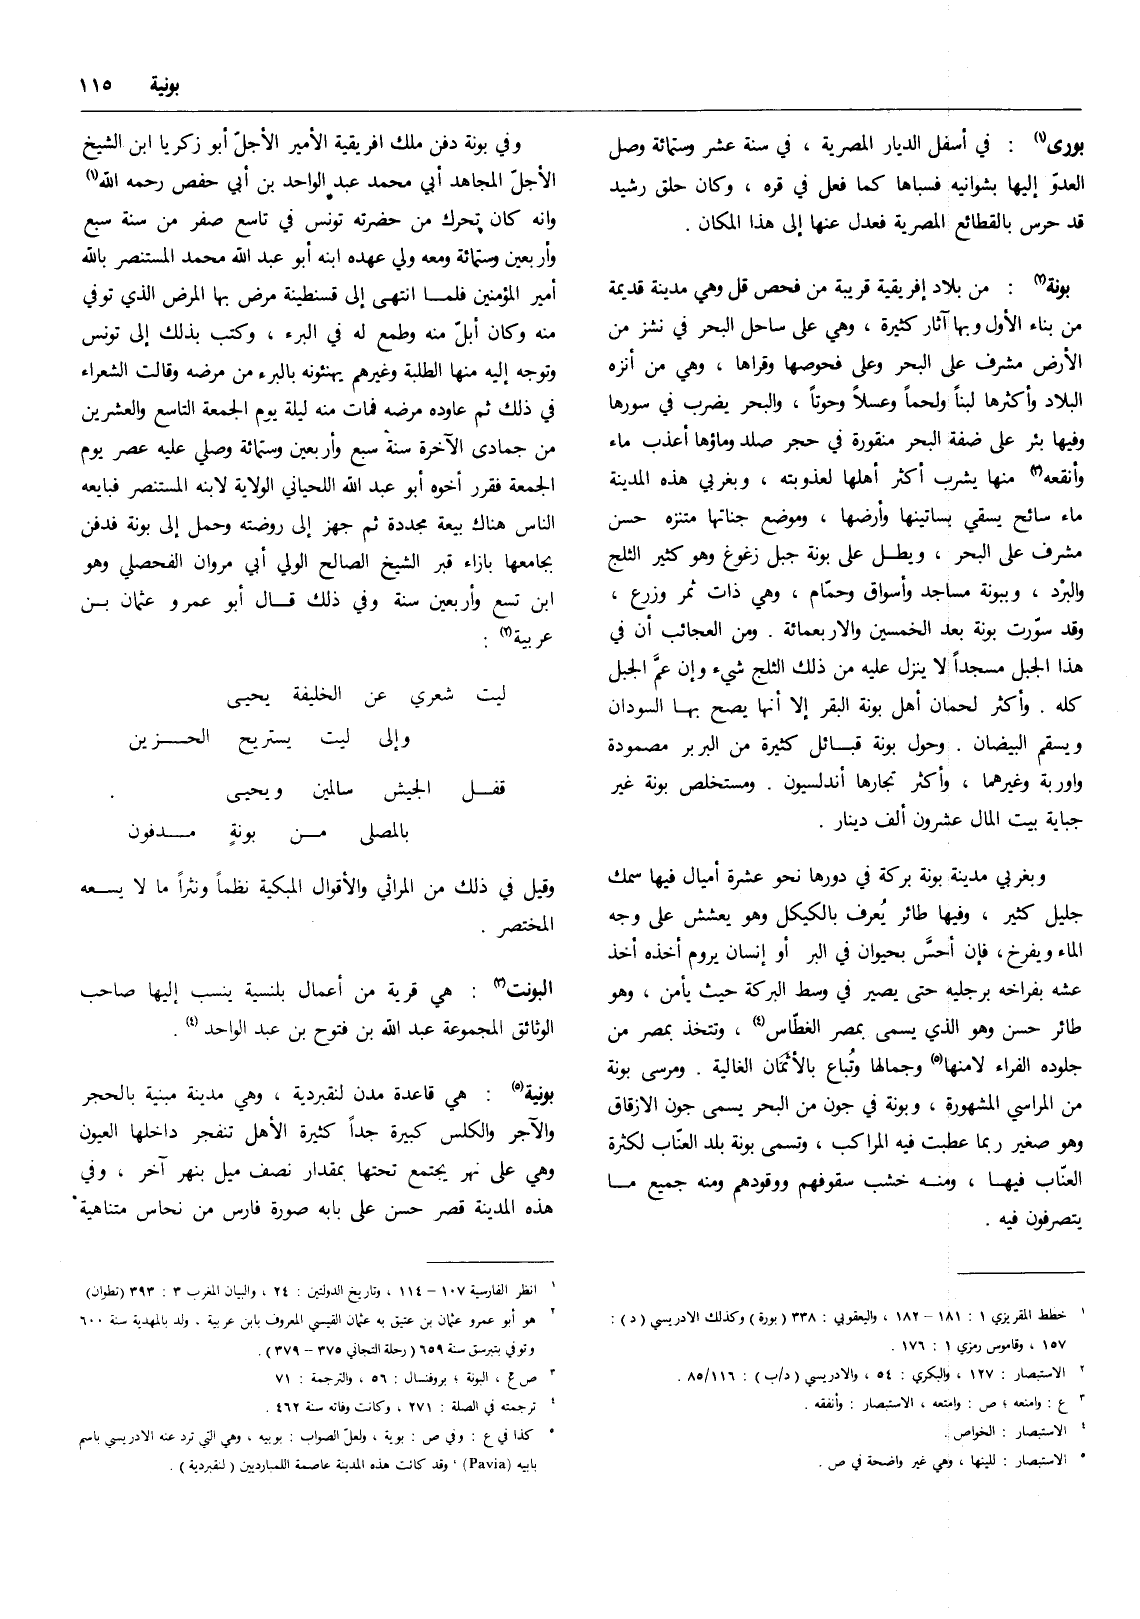 بونية ١١٥
بورى(١) : في أسفل الديار المصرية ، في سنة عشر وستمائة وصل
العدوّ إليها بشوانيه فسباها كما فعل في قره ، وكان حلق رشيد
قد حرس بالقطائع المصرية فعدل عنها إلى هذا المكان .
بونة(٢) : من بلاد إفريقية قريبة من فحص قل وهي مدينة قديمة
من بناء الأول وبها آثار كثيرة ، وهي على ساحل البحر في نشز من
الأرض مشرف على البحر وعلى فحوصها وقراها ، وهي من أنزه
البلاد وأكثرها لبناً ولحماً وعسلاً وحوتاً ، والبحر يضرب في سورها
وفيها بئر على ضفة البحر منقورة في حجر صلد وماؤها أعذب ماء
وأنقعه(٣) منها يشرب أكثر أهلها لعذوبته ، وبغربي هذه المدينة
ماء سائح يسقي بساتينها وأرضها ، وموضع جناتها متنزه حسن
مشرف على البحر ، ويطـل على بونة جبل زغوغ وهو كثير الثلج
والبرْد ، وببونة مساجد وأسواق وحمّام ، وهي ذات ثمر وزرع ،
وقد سوّرت بونة بعد الخمسين والاربعمائة . ومن العجائب أن في
هذا الجبل مسجداً لا ينزل عليه من ذلك الثلج شيء وإن عمَّ الجبل
كله . وأكثر لحمان أهل بونة البقر إلا أنها يصح بهـا السودان
ويسقم البيضان . وحول بونة قبـائل كثيرة من البربر مصمودة
واوربة وغيرهما ، وأكثر تجارها أندلسيون . ومستخلص بونة غير
جباية بيت المال عشرون ألف دينار .
وبغربي مدينة بونة بركة في دورها نحو عشرة أميال فيها سمك
جليل كثير ، وفيها طائر يُعرف بالكيكل وهو يعشش على وجه
الماء ويفرخ ، فإن أحسَّ بحيوان في البر أو إنسان يروم أخذه أخذ
عشه بفراخه برجليه حتى يصير في وسط البركة حيث يأمن ، وهو
طائر حسن وهو الذي يسمى بمصر الغطّاس(٤) ، وتتخذ بمصر من
جلوده الفراء لامنها(٥) وجمالها وتُباع بالأثمَان الغالية . ومرسى بونة
من المراسي المشهورة ، وبونة في جون من البحر يسمى جون الازقاق
وهو صغير ربما عطبت فيه المراكب ، وتسمى بونة بلد العنّاب لكثرة
العنّاب فيهـا ، ومنـه خشب سقوفهم ووقودهم ومنه جميع مـا
يتصرفون فيه .
١ خطط المقريزي ١ : ١٨١ – ١٨٢ ، واليعقوبي : ٣٣٨ (بورة) وكذلك الادريسي (د) :
١٥٧ ، وقاموس رمزي ١ : ١٧٦ .
٢ الاستبصار : ١٢٧ ، والبكري : ٥٤ ، والادريسي (د/ب) : ٨٥/١١٦ .
٣ ع : وامنعه ؛ ص : وامتعه ، الاستبصار : وأنفقه .
٤ الاستبصار : الخواص .
٥ الاستبصار : للينها ، وهي غير واضحة في ص .
وفي بونة دفن ملك افريقية الأمير الأجلّ أبو زكريا ابن الشيخ
الأجلّ المجاهد أبي محمد عبد الواحد بن أبي حفص رحمه الله(١)
وانه كان تحرك من حضرته تونس في تاسع صفر من سنة سبع
وأربعين وستمائة ومعه ولي عهده ابنه أبو عبد الله محمد المستنصر بالله
أمير المؤمنين فلمـا انتهى إلى قسنطينة مرض بها المرض الذي توفي
منه وكان أبلّ منه وطمع له في البرء ، وكتب بذلك إلى تونس
وتوجه إليه منها الطلبة وغيرهم يهنئونه بالبرء من مرضه وقالت الشعراء
في ذلك ثم عاوده مرضه فمات منه ليلة يوم الجمعة التاسع والعشرين
من جمادى الآخرة سنة سبع وأربعين وستمائة وصلي عليه عصر يوم
الجمعة فقرر أخوه أبو عبد الله اللحياني الولاية لابنه المستنصر فبايعه
الناس هناك بيعة مجددة ثم جهز إلى روضته وحمل إلى بونة فدفن
بجامعها بازاء قبر الشيخ الصالح الولي أبي مروان الفحصلي وهو
ابن تسع وأربعين سنة وفي ذلك قـال أبو عمرو عثمان بـن
عربية(٢) :
ليت شعري عن الخليفة يحيـى
وإلى ليت يستريح الحـــزين
قفـل الجيش سالمين ويحيـى
بالمصلى مـن بونةٍ مـدفون
وقيل في ذلك من المراثي والأقوال المبكية نظماً ونثراً ما لا يسـعه
المختصر .
البونت(٣) : هي قرية من أعمال بلنسية ينسب إليها صاحب
الوثائق المجموعة عبد الله بن فتوح بن عبد الواحد(٤) .
بونية(٥) : هي قاعدة مدن لنقبردية ، وهي مدينة مبنية بالحجر
والآجر والكلس كبيرة جداً كثيرة الأهل تنفجر داخلها العيون
وهي على نهر يجتمع تحتها بمقدار نصف ميل بنهر آخر ، وفي
هذه المدينة قصر حسن على بابه صورة فارس من نحاس متناهية
١ انظر الفارسية ١٠٧ – ١١٤ ، وتاريخ الدولتين : ٢٤ ، والبيان المغرب ٣ : ٣٩٣ (تطوان)
٢ هو أبو عمرو عثمان بن عتيق به عثمان القيسي المعروف بابن عربية . ولد بالمهدية سنة ٦٠٠
وتوفي بتبرسق سنة ٦٥٩ (رحلة التجاني ٣٧٥ – ٣٧٩) .
٣ ص ع ، البونة ؛ بروفنسال : ٥٦ ، والترجمة : ٧١
٤ ترجمته في الصلة : ٢٧١ ، وكانت وفاته سنة ٤٦٢ .
٥ كذا في ع : وفي ص : بوية ، ولعلّ الصواب : بوبيه ، وهي التي ترد عنه الادريسي باسم
بابيه (Pavia) ، وقد كانت هذه المدينة عاصمة اللمبارديين (لنقبردية) .